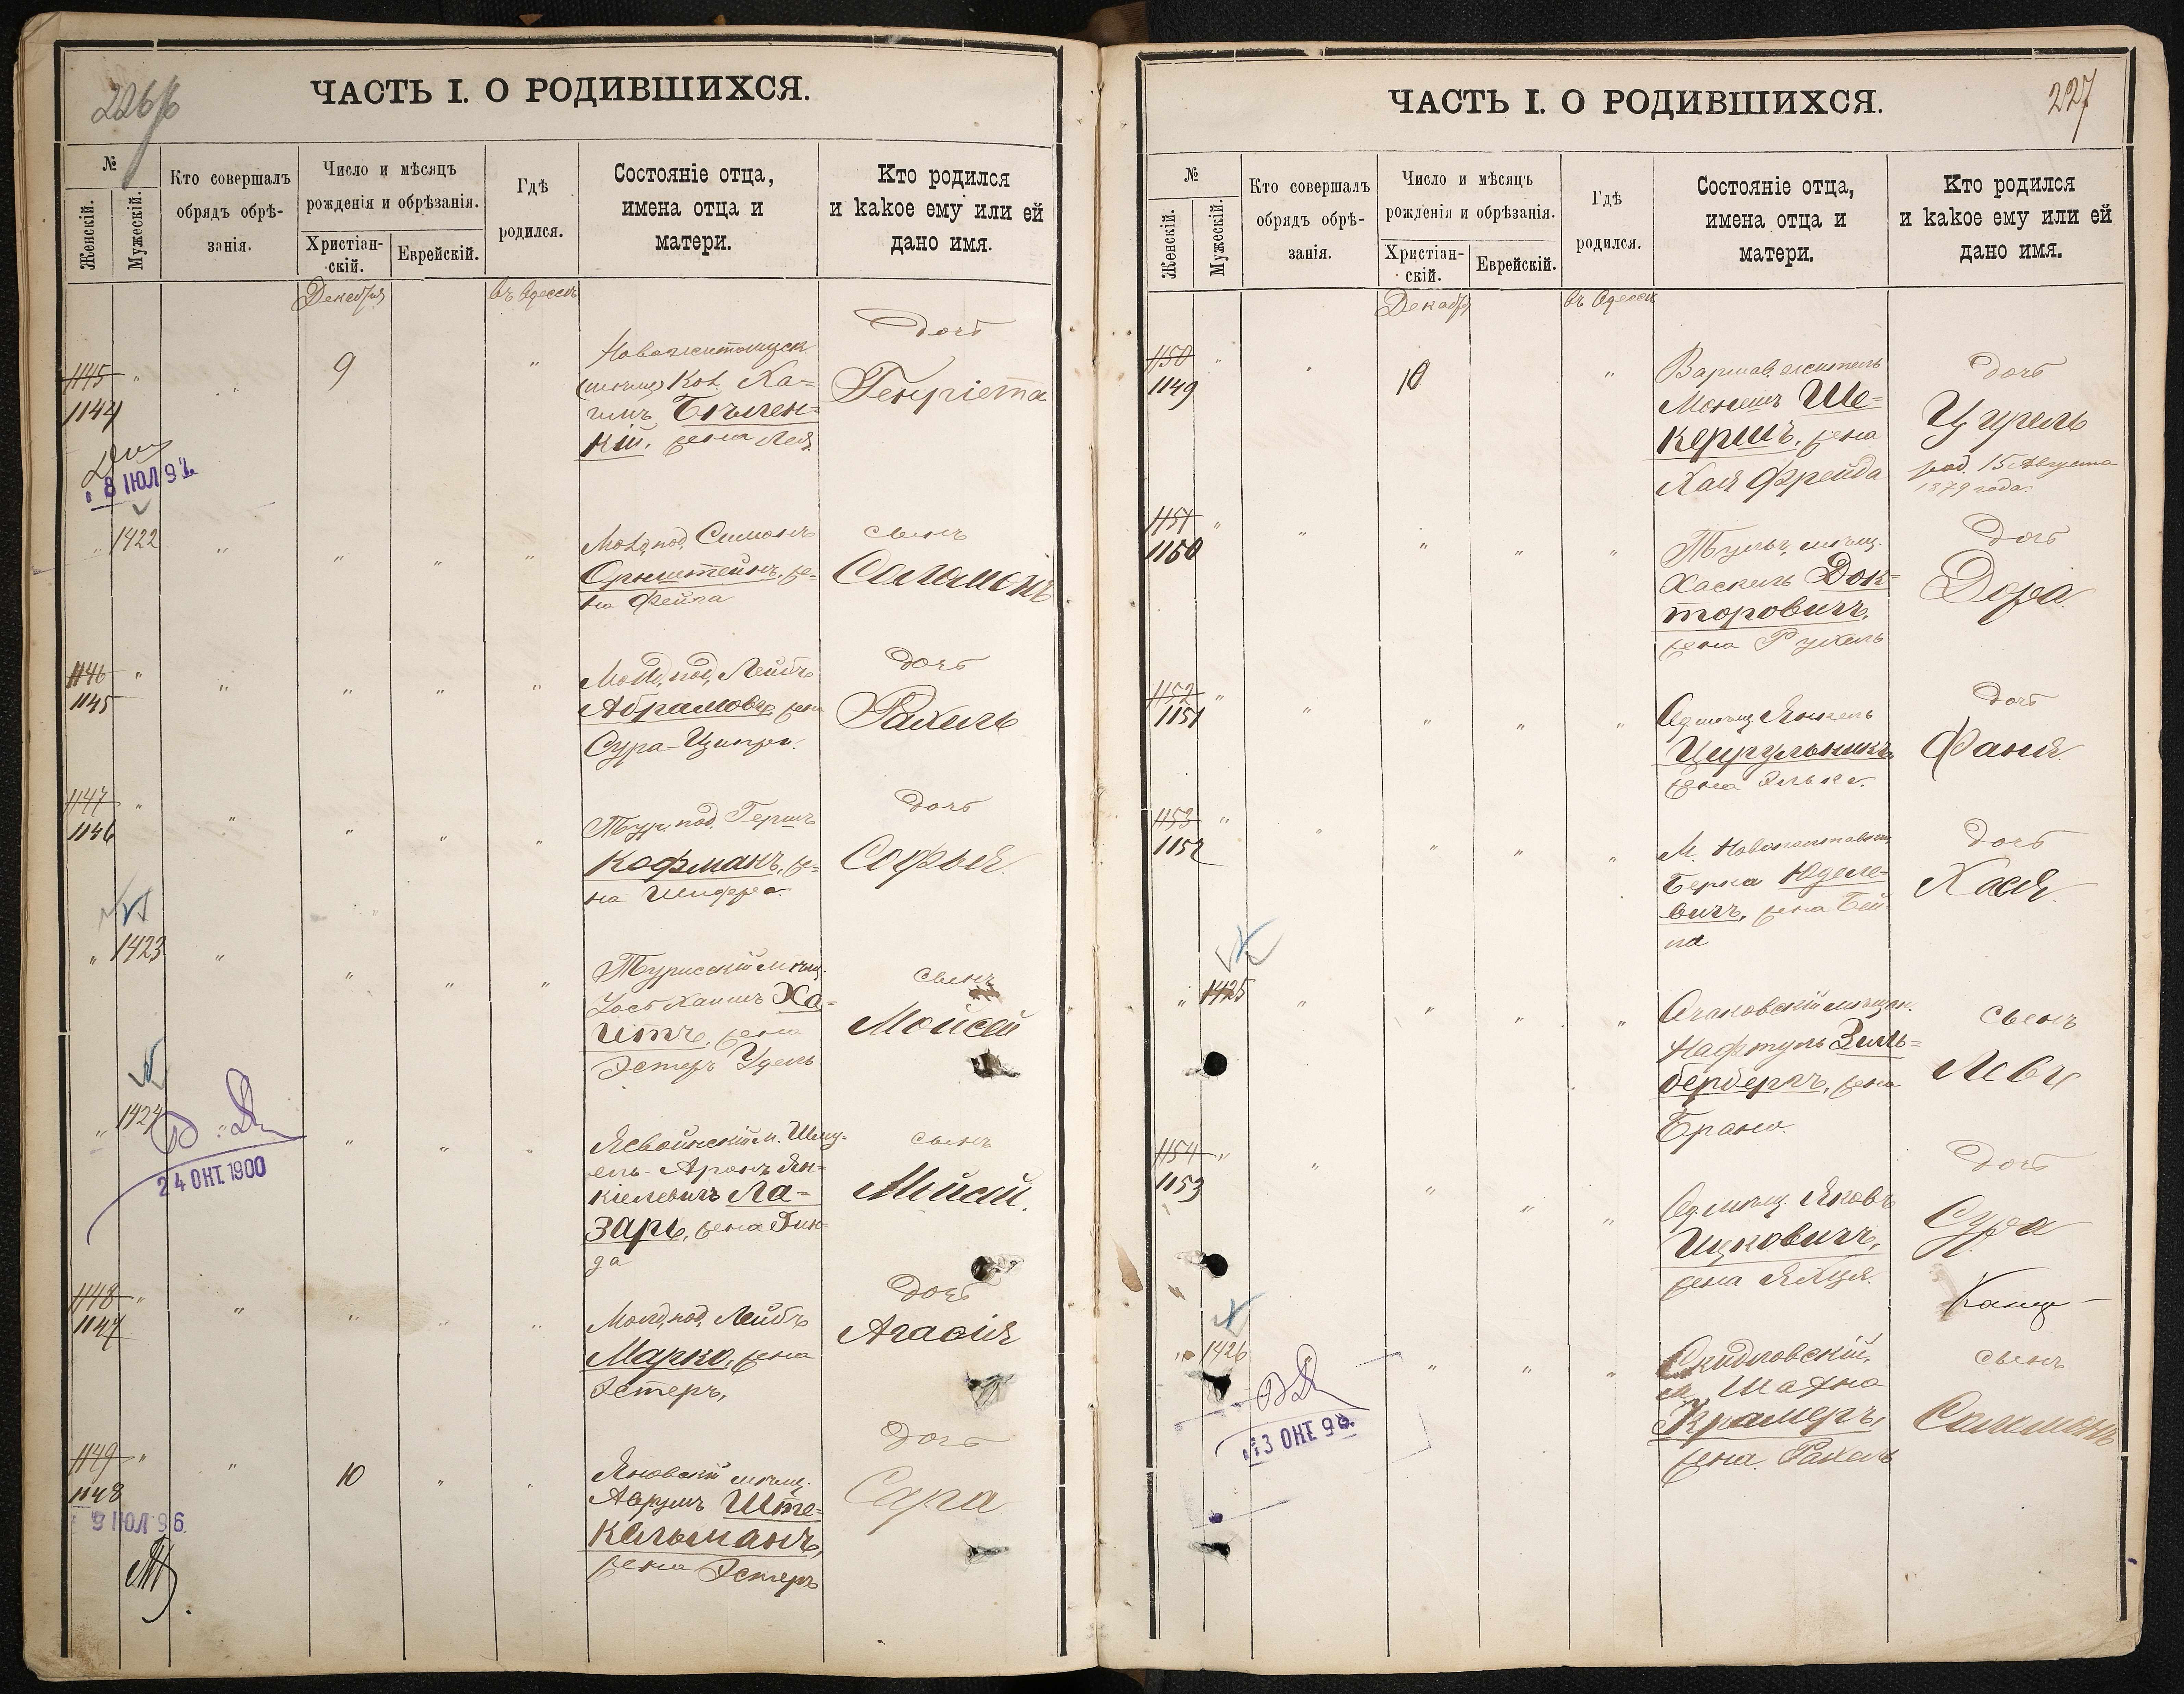 226/б
ЧАСТЬ I. О РОДИВШИХСЯ.
№
Женскій.
Мужескій.
Кто совершалъ
обрядъ обрѣ-
занія.
Число и мѣсяцъ
рожденія и обрѣзанія.
Христіан-
скій.
Еврейскій.
Гдѣ
родился.
Состояніе отца,
имена отца и
матери.
Кто родился
и какое ему или ей
дано имя.
Декабря
въ Одессѣ
1145 "
1144
"
9
"
Ха-
имъ Бѣлен-
кій, жена Лея
дочь
Генріета
8 ІЮЛ 92
" 1422
"
"
"
"
Молд. под. Симонъ
Оренштейнъ, же-
на Фейга
сынъ
Соломонъ
1146 "
1145
"
"
"
"
Молд. под. Лейбъ
Абрамовъ, жена
Сура-Ципра.
дочь
Рахиль
1147 "
1146
"
"
"
"
Тур. под. Гершъ
Кофманъ, же-
на Шифра.
дочь
Софья.
" 1423
"
"
"
"
Турисскій мѣщ.
Іосъ Хаимъ Ха-
итъ, жена
Эстеръ Удель
сынъ
Мойсей
" 1424
"
"
"
24 ОКТ. 1900
Ясвоинскій м. Шму-
ель-Аронъ Ян-
кіелевичъ Ла-
заръ, жена Гин-
да
сынъ
Мойсей.
1148 "
1147
"
"
"
"
Молд. под. Лейбъ
Марко, жена
Эстеръ,
дочь
Агасія
1149 "
1148
"
10
"
"
9 ІЮЛ 96
Яновскій мѣщ.
Аврумъ Ште-
кельманъ,
жена Эстеръ
дочь
Сара
227
ЧАСТЬ I. О РОДИВШИХСЯ.
№
Женскій.
Мужескій.
Кто совершалъ
обрядъ обрѣ-
занія.
Число и мѣсяцъ
рожденія и обрѣзанія.
Христіан-
скій.
Еврейскій.
Гдѣ
родился.
Состояніе отца,
имена отца и
матери.
Кто родился
и какое ему или ей
дано имя.
Декабря
въ Одессѣ
1150 "
1149
"
10
"
Варшав. житель
Монешъ Ше-
кершъ, жена
Хая Фрейда
дочь
Цирель
род. 15 Августа
1879 года.
1151 "
1150
"
"
"
"
Тульч. мѣщ.
Хаскель Док-
торовичъ,
жена Рухель
дочь
Дора
1152 "
1151
"
"
"
"
Од. мѣщ. Янкель
Цирульникъ,
жена Элька.
дочь
Фаня
1153 "
1152
"
"
"
"
Берка Юделе-
вичъ, жена Бей-
ла
дочь
Хася
" 1425
"
"
"
"
Очаковскій мѣщан.
Нафтуль Зиль-
бербергъ, жена
Брана.
сынъ
Левъ
1154 "
1153
"
"
"
"
Од. мѣщ. Яковъ
Ицковичъ,
жена Яхця.
дочь
Сура
" 1426
"
"
"
13 ОКТ 98.
Скидловскій
м. Шахна
Крамеръ,
жена Рахель
сынъ
Соломонъ